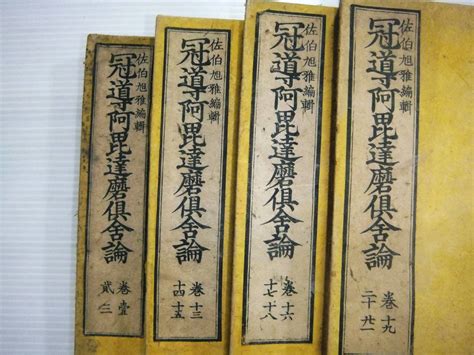 佐伯旭雅編輯
冠導阿毘達磨俱舍論
卷壹
貳三
佐伯旭雅編輯
冠導阿毘達磨俱舍論
卷十三
十四十五
佐伯旭雅編輯
冠導阿毘達磨俱舍論
卷十六
十七十八
佐伯旭雅編輯
冠導阿毘達磨俱舍論
卷十九
二十廿一